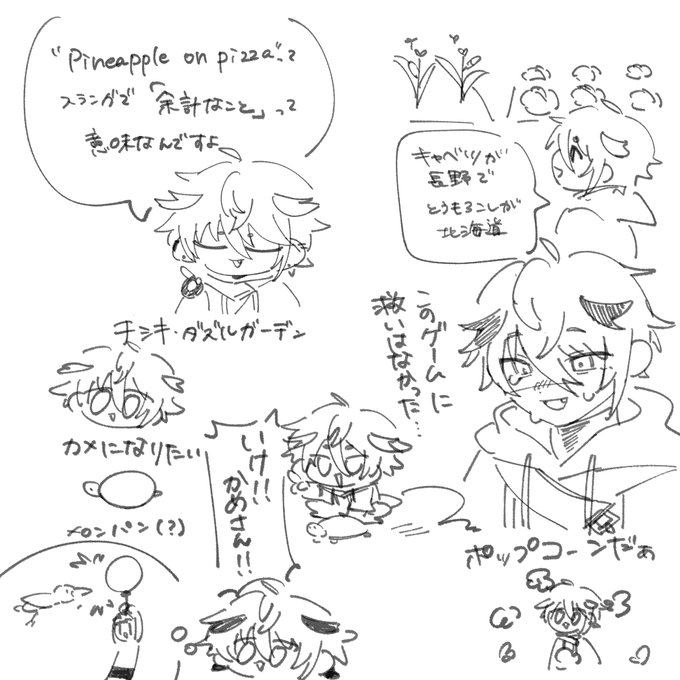 "Pineapple on pizza"って
スラングで「余計なこと」って
意味なんですよ
チシキ・ダズルガーデン
キャベツが
長野で
とうもろこしが
北海道
このゲームに
救いはなかった…
カメになりたい
メロンパン(?)
いけ!!
かめさん!!
ポップコーンだぁ